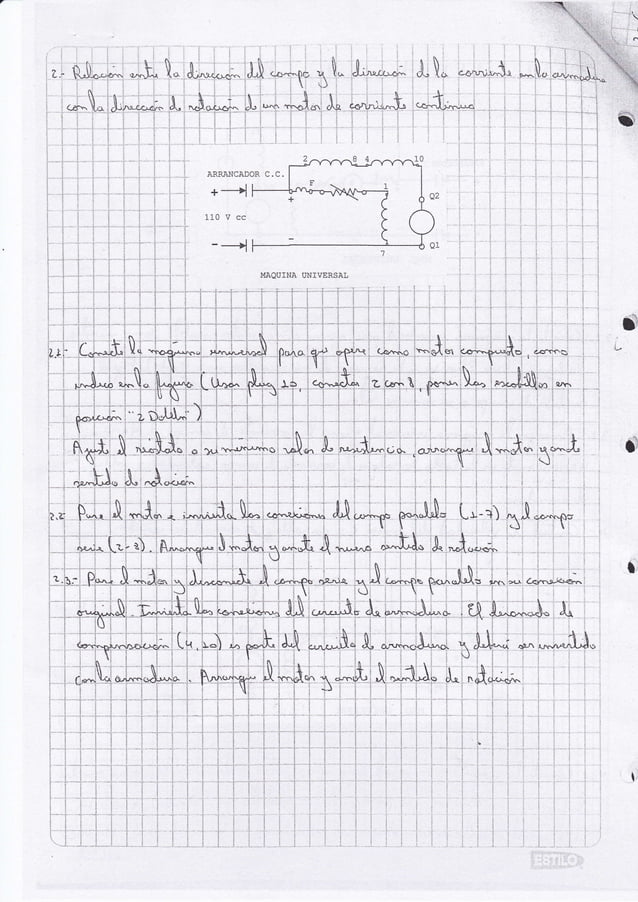 2.- Relación entre la dirección del campo y la dirección de la corriente en la armadura
con la dirección de rotación de un motor de corriente continua
2 8 4 10
ARRANCADOR C.C.
F 1
+ + Q2
110 V cc
- - Q1
7
MAQUINA UNIVERSAL
2.1- Conecte la maquina universal para que opere como motor compuesto, como
indica en la figura (Usar plug 10, conectar 2 con 8, poner las escobillas en
posición "2 Dolln")
Ajuste el reóstato a su minimo valor de resistencia, arranque el motor y anote
sentido de rotación
2.2 Pare el motor e invierta las conexiones del campo paralelo (1-7) y el campo
serie (2-8). Arranque el motor y anote el nuevo sentido de rotación
2.3.- Pare el motor y desconecte el campo serie y el campo paralelo en su conexión
original. Invierta las conexiones del circuito de armadura. El devanado de
compensación (4,10) es parte del circuito de armadura y deberá ser invertido
con la armadura. Arranque el motor y anote el sentido de rotación
ESTILO